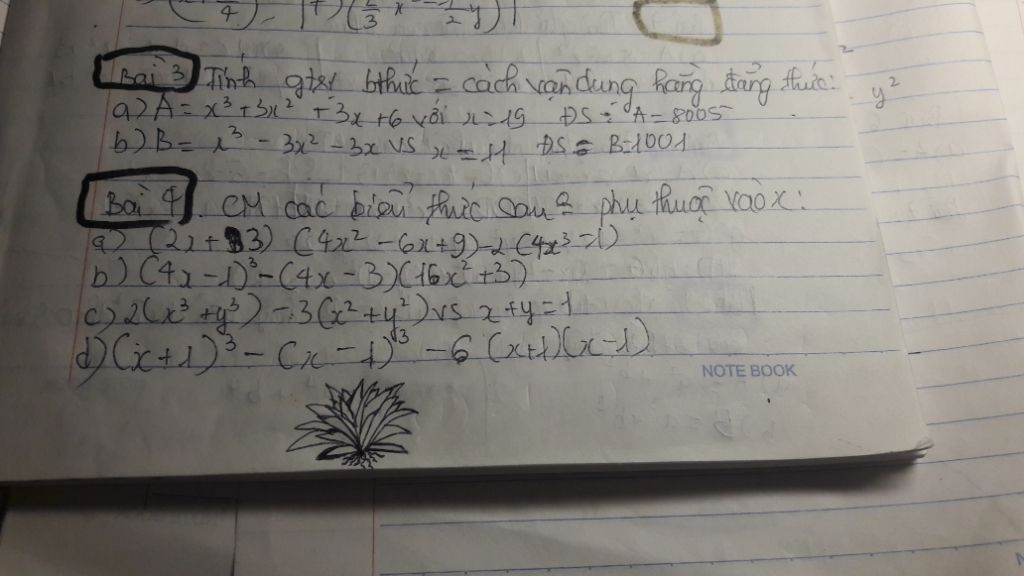 4), 7) (2/3 x - 1/2 y)
Bài 3 Tính gtrị bthức = cách vận dụng hằng đẳng thức:
a) A = x³ + 3x² + 3x + 6 với x = 19 ĐS: A = 8005
y²
b) B = x³ - 3x² - 3x vs x = 11 ĐS = B = 1001
Bài 4. CM các biểu thức sau phụ thuộc vào x:
a) (2x + 3) (4x² - 6x + 9) - 2 (4x³ - 1)
b) (4x - 1)³ - (4x - 3)(16x² + 3)
c) 2(x³ + y³) - 3(x² + y²) vs x + y = 1
d) (x + 1)³ - (x - 1)³ - 6 (x + 1)(x - 1)
NOTE BOOK